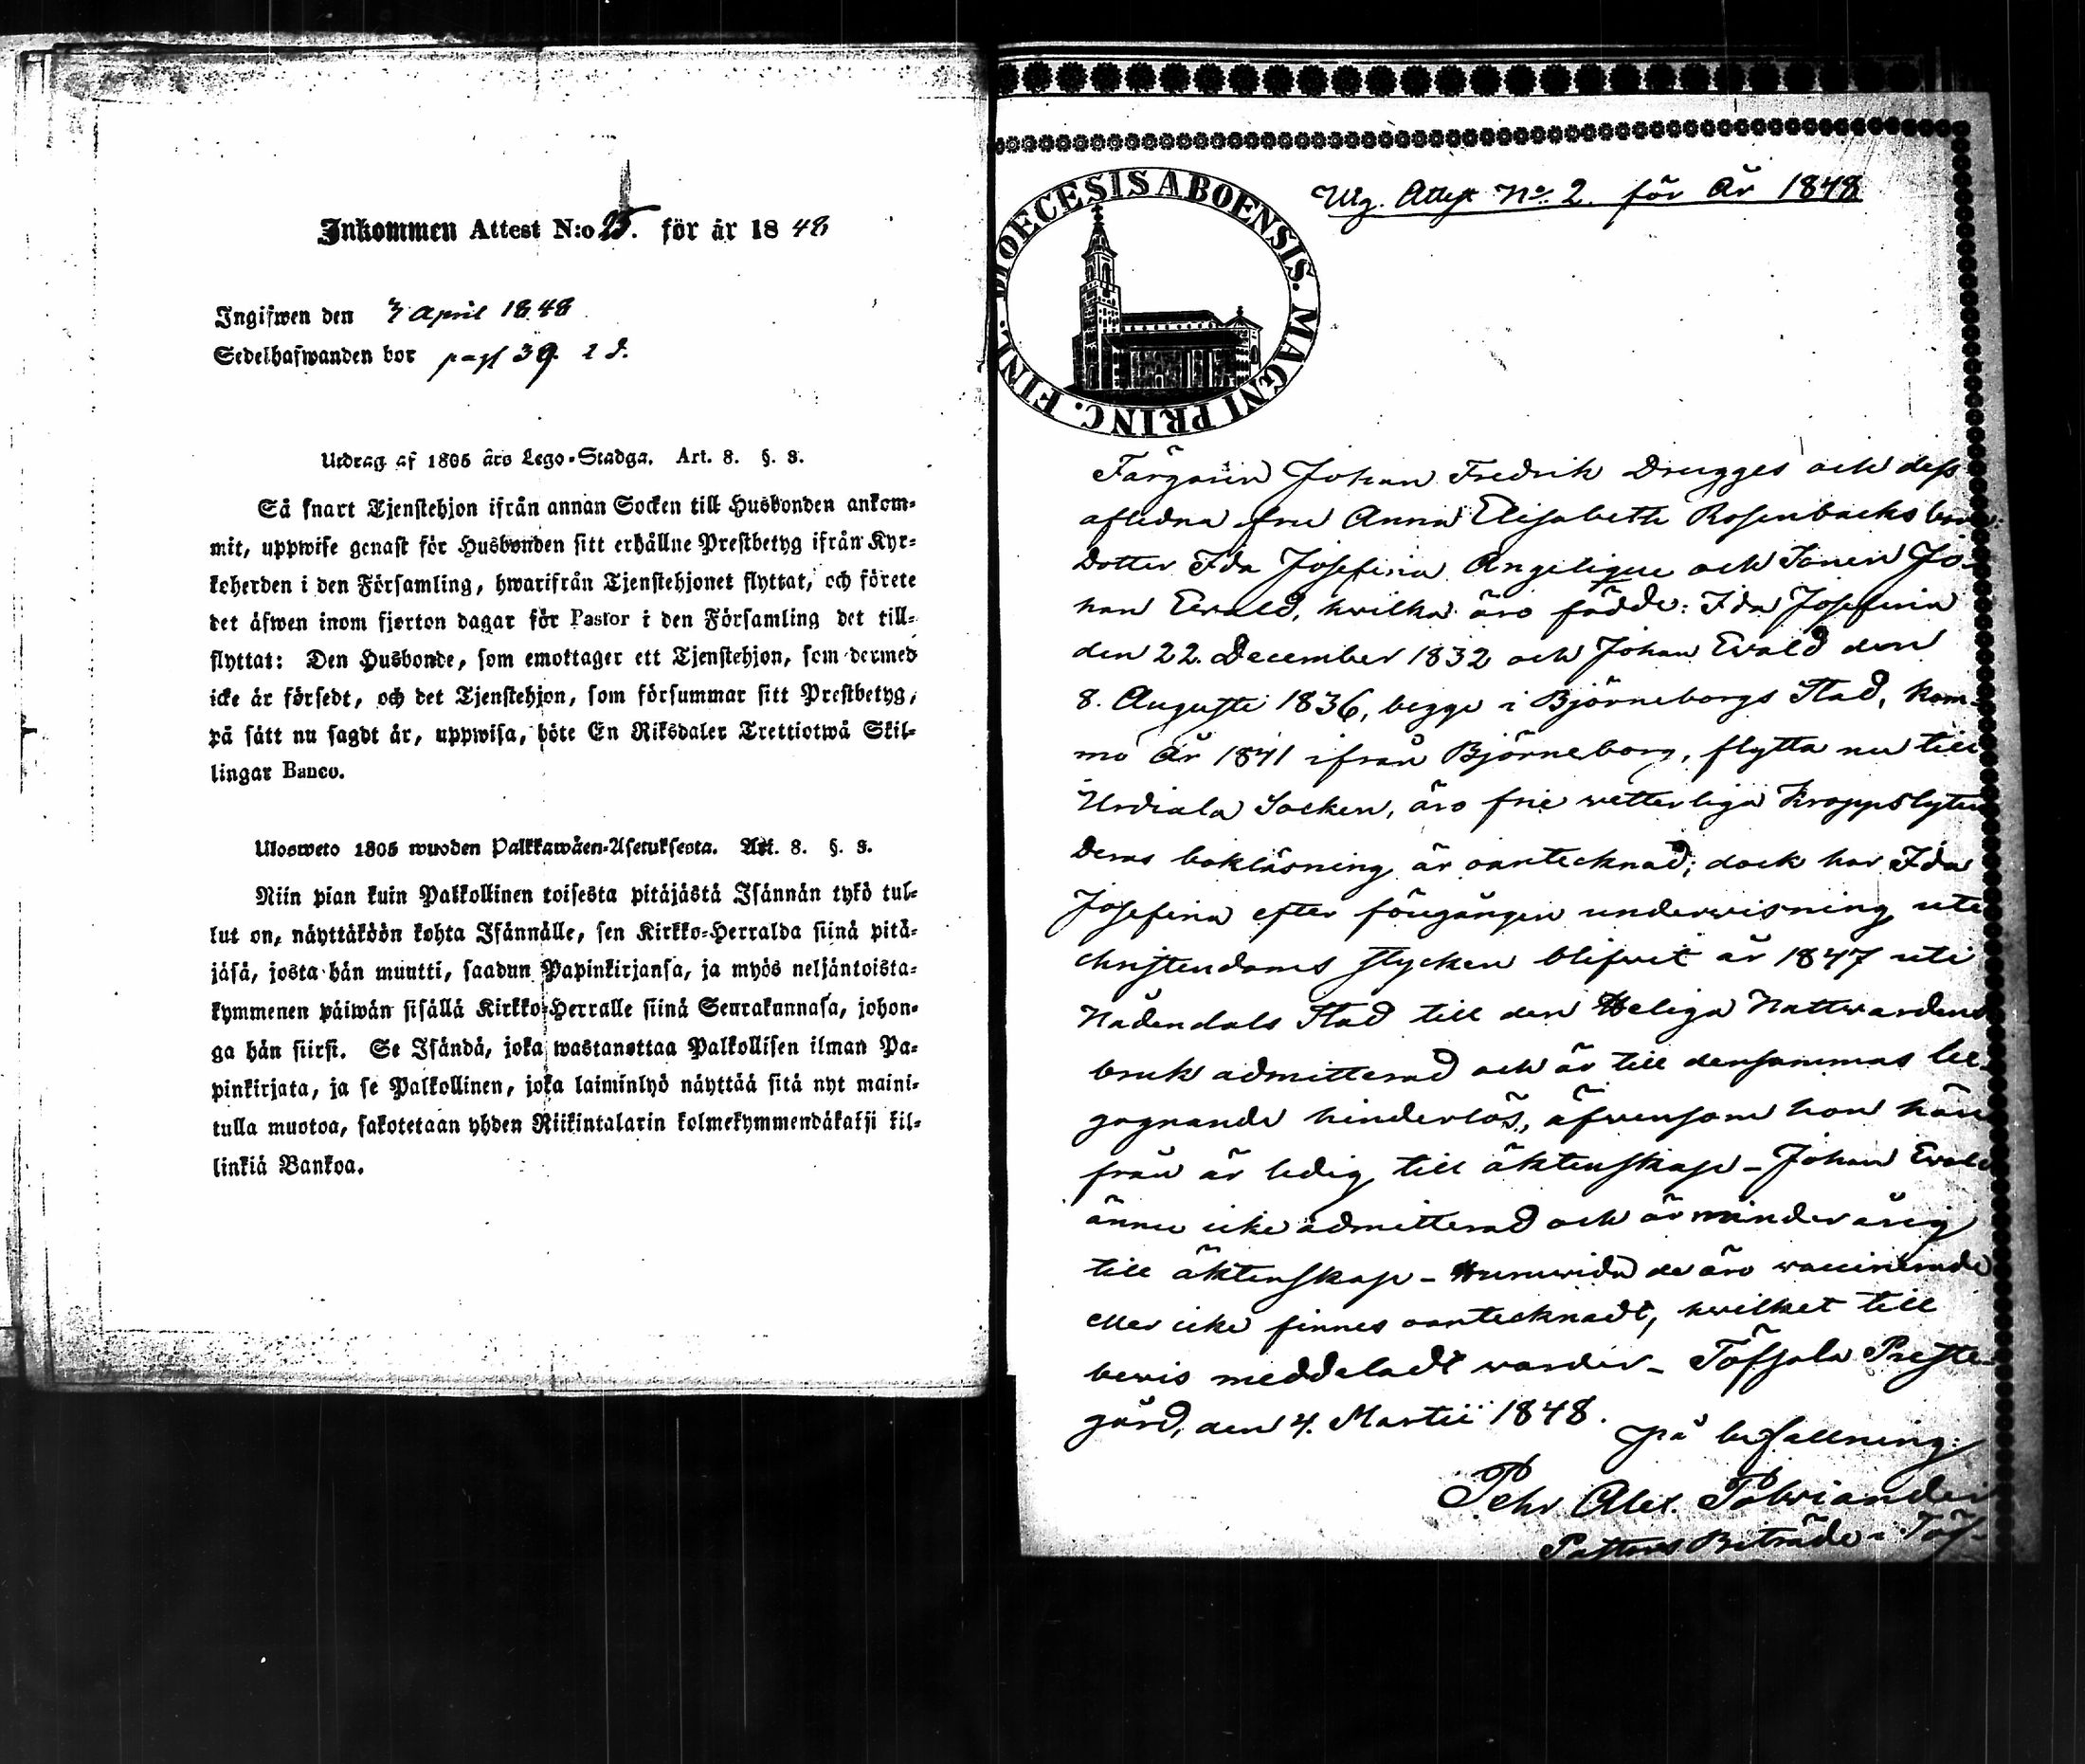 Inkommen Attest N:o 25. för år 1848
Ingifwen den 3 April 1848
Sedelhafwanden bor pag 39. 2 d.
Utdrag af 1805 års Lego-Stadga. Art. 8. §. 8.
Så snart Tjenstehjon ifrån annan Socken till Husbonden ankom-
mit, uppwise genast för Husbonden sitt erhållne Prestbetyg ifrån Kyr-
koherden i den Församling, hwarifrån Tjenstehjonet flyttat, och förete
det äfwen inom fjorton dagar för Pastor i den Församling det till-
flyttat: Den Husbonde, som emottager ett Tjenstehjon, som dermed
icke är försedt, och det Tjenstehjon, som försummar sitt Prestbetyg,
på sätt nu sagdt är, uppwisa, böte En Riksdaler Trettiotwå Skil-
lingar Banco.
Uloswetto 1805 wuoden Palkkawäen-Asetuksesta. Art. 8. §. 8.
Niin pian kuin Palkollinen toisesta pitäjästä Isännän tykö tul-
lut on, näyttäköön kohta Isännälle, sen Kirkko-Herralda siinä pitä-
jäsä, josta hän muutti, saadun Papinkirjansa, ja myös neljäntoista-
kymmenen päiwän sisällä Kirkko-Herralle siinä Seurakunnasa, johon-
ga hän siirsi. Se Isändä, joka wastanottaa Palkollisen ilman Pa-
pinkirjata, ja se Palkollinen, joka laiminlyö näyttää sitä nyt maini-
tulla muotoa, sakotetaan yhden Riikintalarin kolmekymmendäkaksi kil-
linkiä Bankoa.
DIOECESIS ABOENSIS. MAGNI PRINC. FINL.
Utg. Attest No. 2. för År 1848
Färgaren Johan Fredrik Drugges och dess
aflidna fru Anna Elisabeth Rosenbacks barn:
Dotter Ida Josefina Angelique och Sonen Jo-
han Ewald, hwilka äro födde: Ida Josefina
den 22. December 1832 och Johan Ewald den
8. Augusti 1836, begge i Björneborgs Stad, kom-
mo År 1841 ifrån Björneborg, flytta nu till
Urdiala Socken, äro frie wetterliga Kroppslyten
Deras bokläsning är oantecknad; dock har Ida
Josefina efter föregången underwisning uti
christendoms stycken blifwit år 1847 uti
Nådendals Stad till den Heliga Nattwardens
bruk admitterad och är till densammas be-
gagnande hinderlös, äfwensom hon här
ifrån är ledig till äktenskap - Johan Ewald
ännu icke admitterad och är minderårig
till äktenskap - Huruwida de äro waccinerade
eller icke finnes oantecknadt, hwilket till
bewis meddeladt warder - Töfsala Preste-
gård, den 4. Martii 1848.
på befallning:
Pehr Alex. Palviander
Pastors Biträde i Töf-